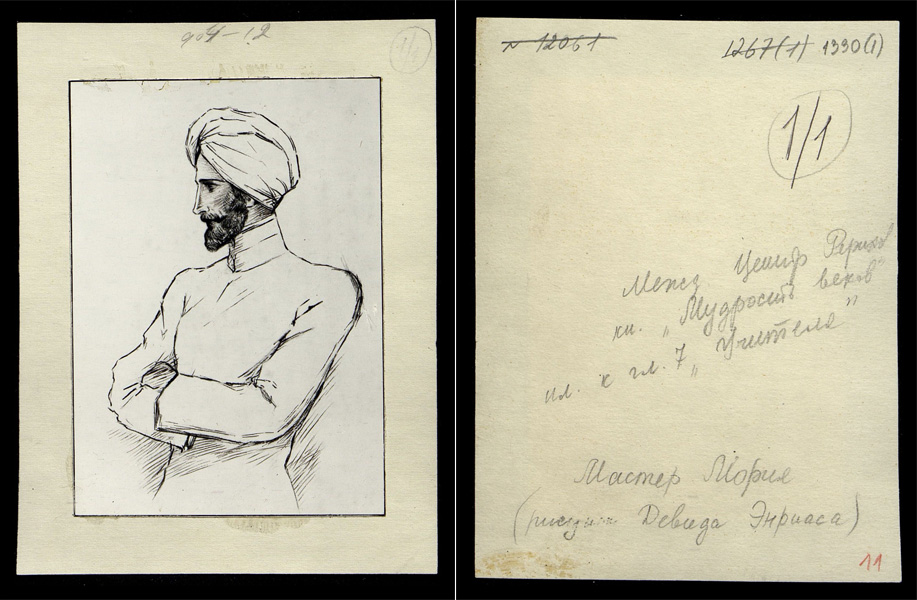 1/1
N 12061
1267(1) 1330(1)
1/1
Центр Рерихов
кн. „Мудрость веков"
ил. к гл. 7 „Учителя"
Мастер Мория
(рисунок Девида Энриаса)
11